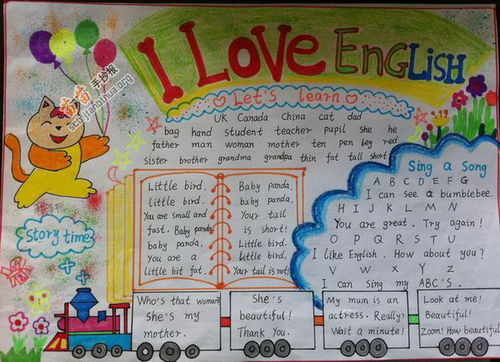 I LOVE ENGLISH
Let's learn
UK Canada China cat dad
bag hand student teacher pupil she he
father man woman mother ten pen leg red
sister brother grandma grandpa thin fat tall short
Little bird,
little bird,
You are small and
fast. Baby panda,
baby panda,
You are a
little bit fat.
Baby panda,
baby panda,
Your tail
is short!
Little bird.
little bird.
Your tail is not!
Sing a Song
A B C D E F G
I can see a bumblebee
H I J K L M N
You are great. Try again!
O P Q R S T U
I like English. How about you?
V W X Y Z
I can Sing my ABC's.
Story time
Who's that woman?
She's my
mother.
She's
beautiful!
Thank you.
My mum is an
actress. Really?
Wait a minute!
Look at me!
Beautiful!
Zoom! How beautiful!
手抄报